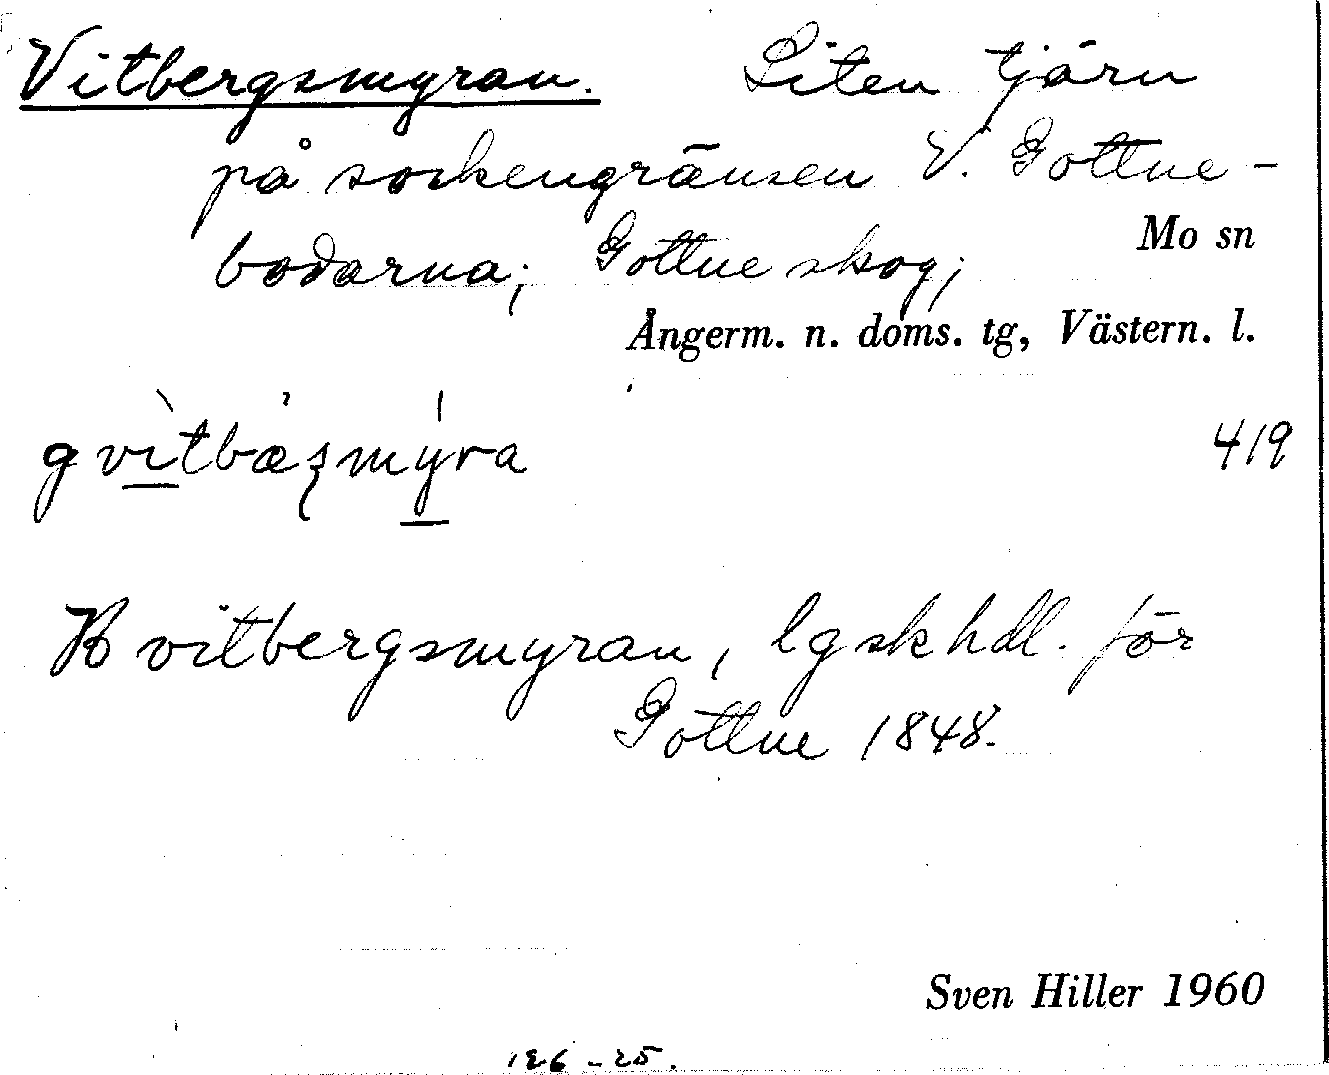 Vitbergsmyran. Liten tjärn
på sockengränsen V. Gottne-
bodarna; Gottne skog;
Mo sn
Ångerm. n. doms. tg, Västern. l.
gvìtbæʂmýra 419
Kvitbergsmyran, lgskhdl. för
Gottne 1848.
Sven Hiller 1960
126-25.